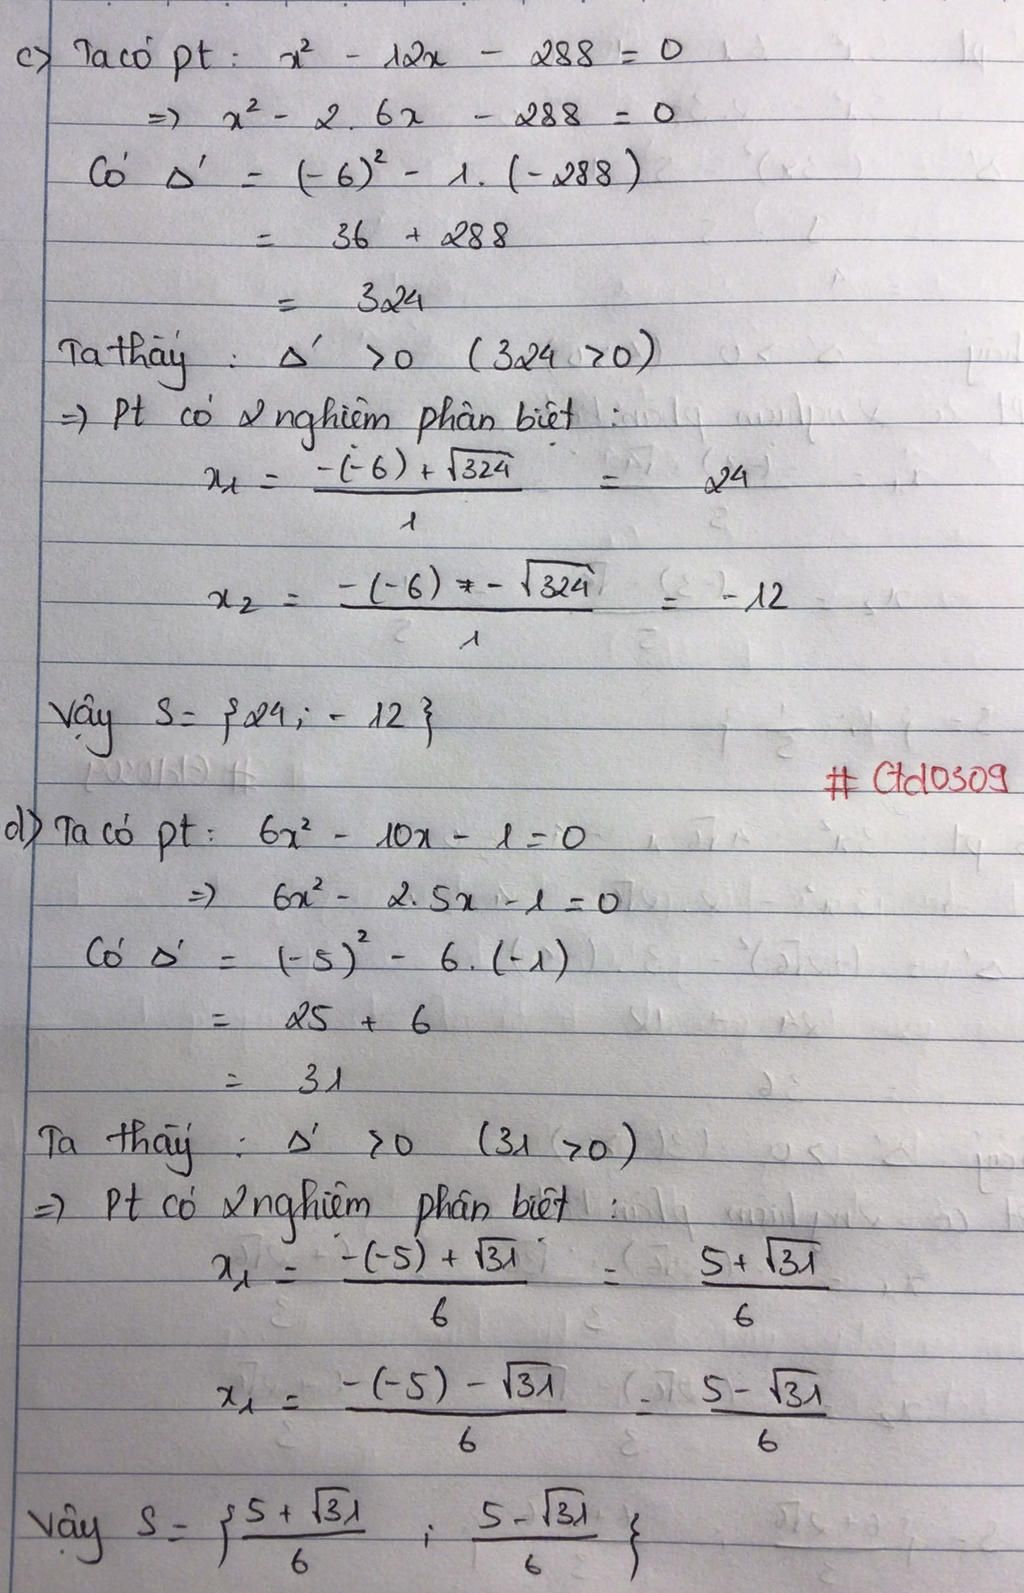 c) Ta có pt : x² - 12x - 288 = 0
=> x² - 2.6x - 288 = 0
Có Δ' = (-6)² - 1.(-288)
= 36 + 288
= 324
Ta thấy : Δ' > 0 (324 > 0)
=> Pt có 2 nghiệm phân biệt :
x₁ = (-(-6) + √324)/1 = 24
x₂ = (-(-6) - √324)/1 = -12
Vậy S = {24; -12}
# Ctd0309
d) Ta có pt : 6x² - 10x - 1 = 0
=> 6x² - 2.5x - 1 = 0
Có Δ' = (-5)² - 6.(-1)
= 25 + 6
= 31
Ta thấy : Δ' > 0 (31 > 0)
=> Pt có 2 nghiệm phân biệt :
x₁ = (-(-5) + √31)/6 = (5 + √31)/6
x₁ = (-(-5) - √31)/6 = (5 - √31)/6
Vậy S = {(5 + √31)/6 ; (5 - √31)/6}